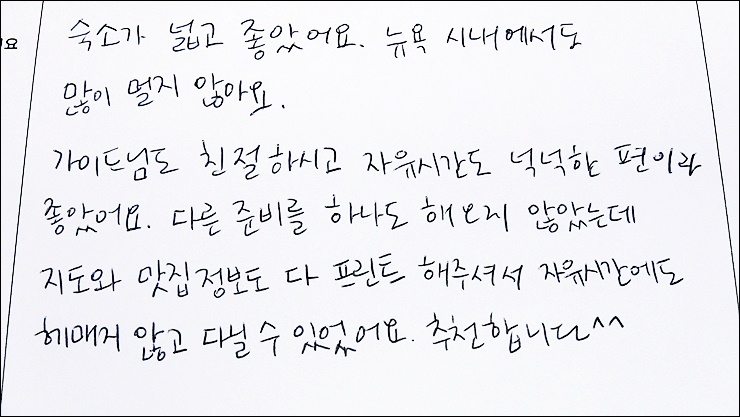 숙소가 넓고 좋았어요. 뉴욕 시내에서도
많이 멀지 않아요.
가이드님도 친절하시고 자유시간도 넉넉한 편이라
좋았어요. 다른 준비를 하나도 해오지 않았는데
지도와 맛집정보도 다 프린트 해주셔서 자유시간에도
헤매지 않고 다닐 수 있었어요. 추천합니다^^